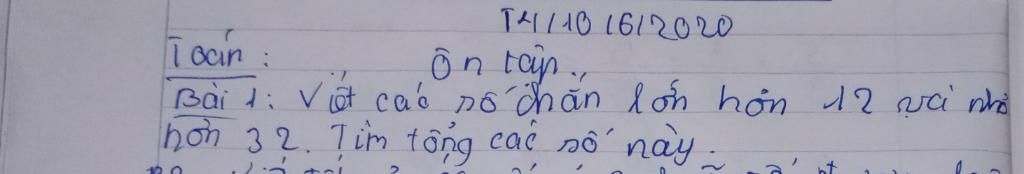 T4/10/6/2020
Toán:
Ôn tập.
Bài 1: Viết các số chẵn lớn hơn 12 và nhỏ
hơn 32. Tìm tổng các số này.